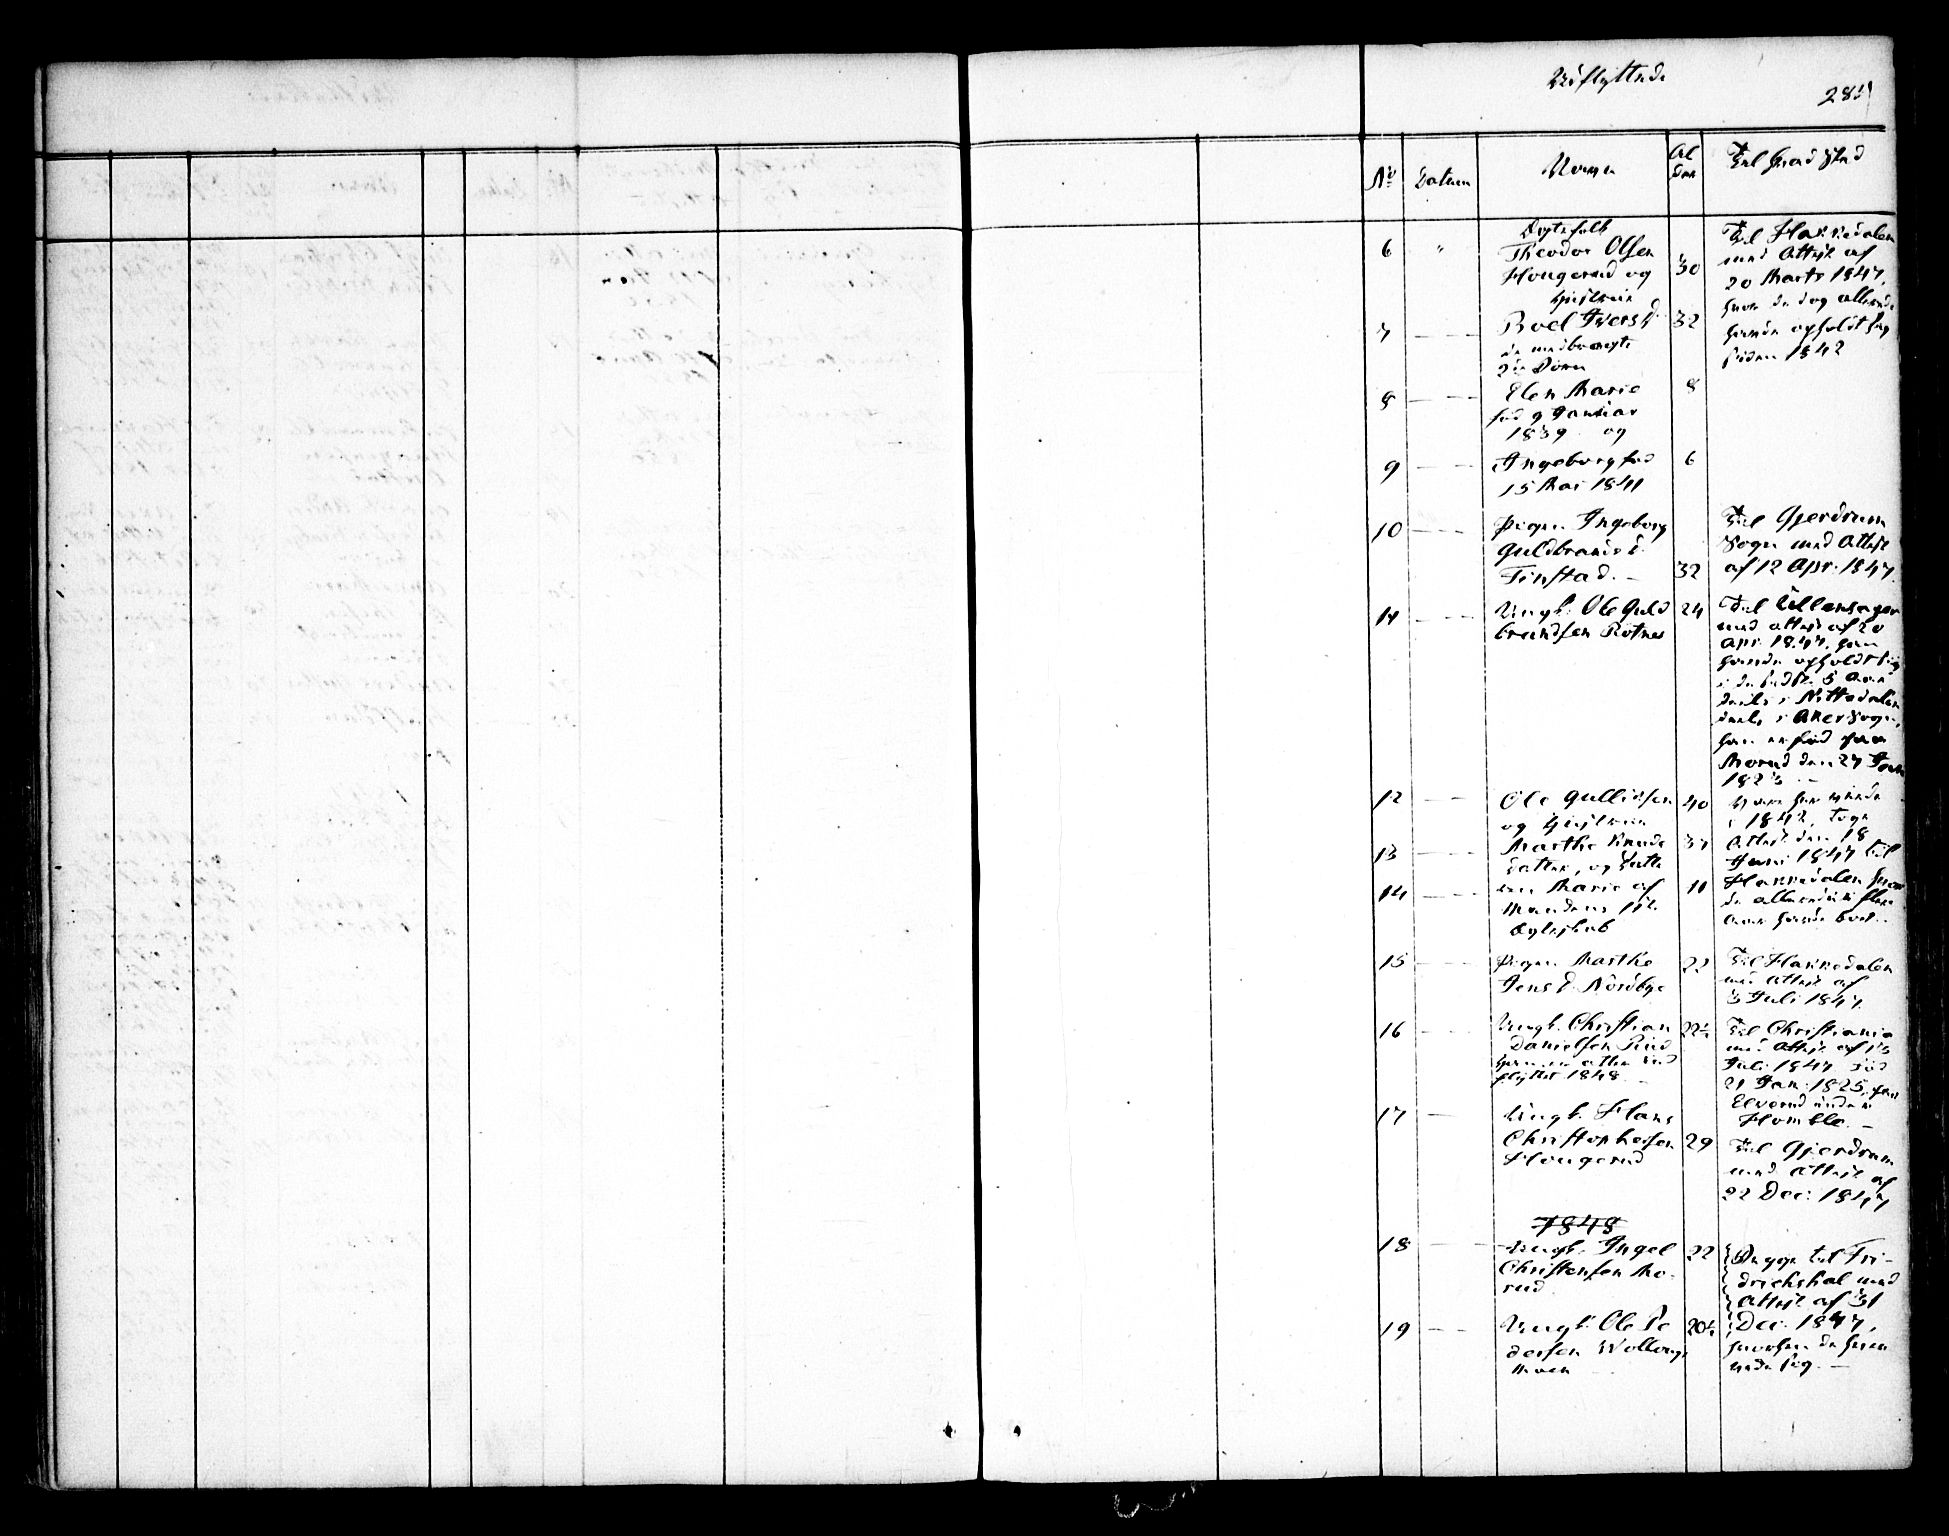 Udflyttede
No Datum Navn Alder Til hvad Sted
6 " Ægtefolk
Theodor Olsen
Hougerud og 30
Hustrue
Til Hakkedalen
med Attest af
20 Marts 1847,
hvor de dog allerede
havde opholdt sig
siden 1842
7 Boel Iversd. 32
de medbragte
2de Børn
8 Elen Marie 8
fød 9 Januar
1839 og
9 Ingeborg fød 6
15 Mai 1841
10 Pigen Ingeborg
Guldbrandsd.
Finstad. 32
Til Gjerdrum
Sogn med Attest
af 12 Apr. 1847.
11 Ungk. Ole Guld 24
brandsen Rotnes
Til Ullensager
med Attest af 20
Apr. 1847, han
havde opholdt sig
i de sidste 5 Aar
deels i Nittedalen
deels i Aker Sogn,
han er fød paa
Morud den 27 Jan
1823
12 Ole Gulliksen 40
og Hustrue
13 Marthe Knuds 37
datter, og Datte
14 ren Marie af 11
Mandens
Ægteskab
i 1842, tog
Attest den 18
Juni 1847 til
Hakkedalen hvor
de allerede i flere
Aar havde boet.
15 Pigen Marthe 22
Jensd. Nordbye
Til Hakkedalen
med Attest af
3 Juli 1847.
16 Ungk. Christian 22½
Danielsen Rud
han er atter ind
flyttet 1848
Til Christiania
med Attest af 13
Juli 1847 fød
21 Jan. 1825, paa
Elverud under
Homble.
17 Ungk. Hans
Christophersen 29
Hougerud
Til Gjerdrum
med Attest af
22 Dec. 1847
1848
18 Ungk. Ingel 22
Christensen Mo-
rud
19 Ungk. Ole Pe 20½
dersen
moen
Begge til Fri-
drichshal med
Attest af 31
Dec. 1847,
hvorhen de
sig.